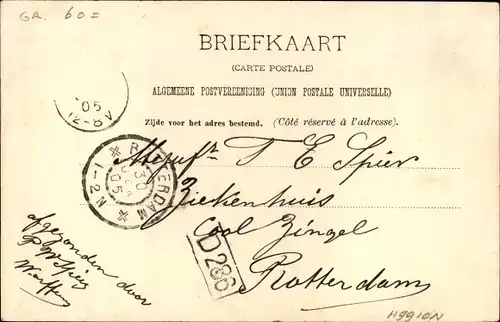 GR. 60=
BRIEFKAART
(CARTE POSTALE)
ALGEMEENE POSTVEREENIGING (UNION POSTALE UNIVERSELLE)
Zijde voor het adres bestemd. (Côté réservé à l'adresse).
05
12-8 V
ROTTERDAM
30
05
1-2 N
Mejufr T E Spier
Ziekenhuis
Cool Zingel
Rotterdam
D 286
afgezonden door
H9910N